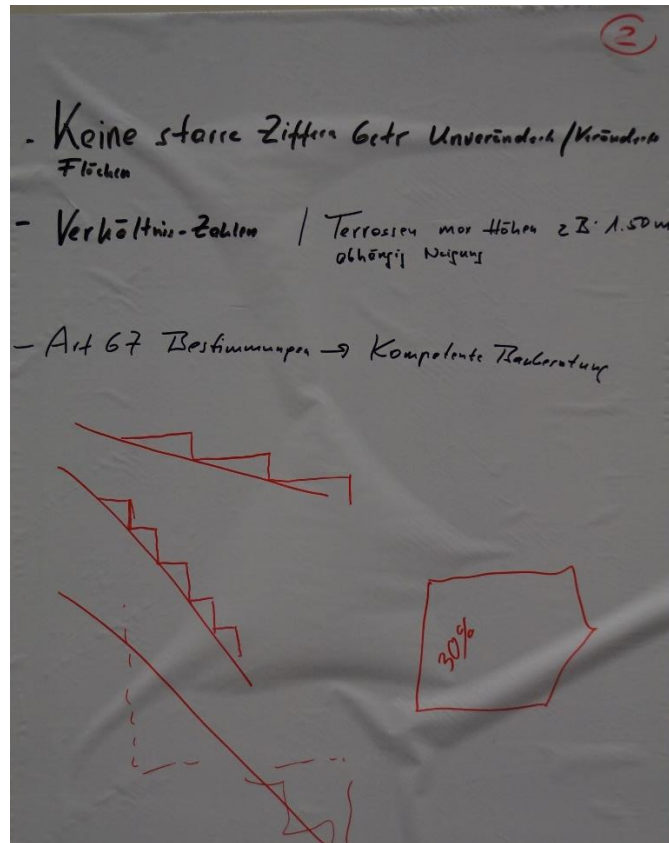 2
- Keine starre Ziffern betr Unveränderb/Veränderte
Flächen
- Verhältnis-Zahlen / Terrassen max Höhen zB. 1.50m
abhängig Neigung
- Art 67 Bestimmungen → Kompetente Bauberatung
30%